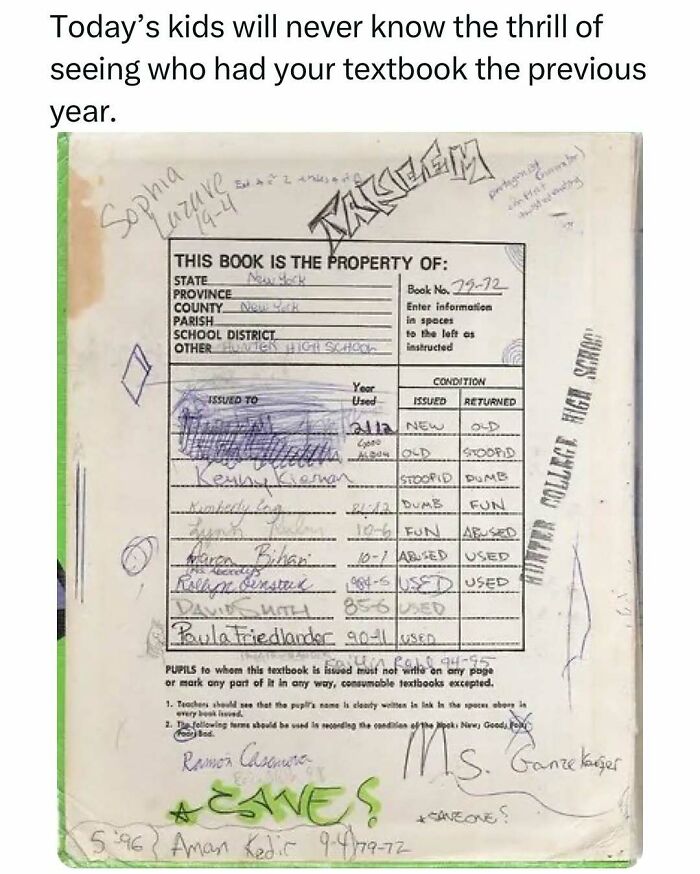 Today’s kids will never know the thrill of
seeing who had your textbook the previous
year.
Sophia
19-4
TAKEEM
THIS BOOK IS THE PROPERTY OF:
STATE New York
PROVINCE
COUNTY New York
PARISH
SCHOOL DISTRICT
OTHER HUNTER HIGH SCHOOL
Book No. 79-72
Enter information
in spaces
to the left as
instructed
ISSUED TO Year Used CONDITION
ISSUED RETURNED
NEW OLD
OLD STOOPID
Kenny Kiernan STOOPID DUMB
Kimberly DUMB FUN
Lynn 10-6 FUN ABUSED
Aaron Bihari 10-1 ABUSED USED
USED USED
DAVID SMITH 85-6 USED
Paula Friedlander 90-91 USED
94-95
HUNTER COLLEGE HIGH SCHOOL
PUPILS to whom this textbook is issued must not write on any page
or mark any part of it in any way, consumable textbooks excepted.
1. Teachers should see that the pupil's name is clearly written in ink in the spaces above in
every book issued.
2. The following terms should be used in recording the condition of the book: New; Good; Fair;
Poor; Bad.
Ramon Casanova
Ms. Ganzekaufer
S '96 Aman Kedir 9-4 79-72